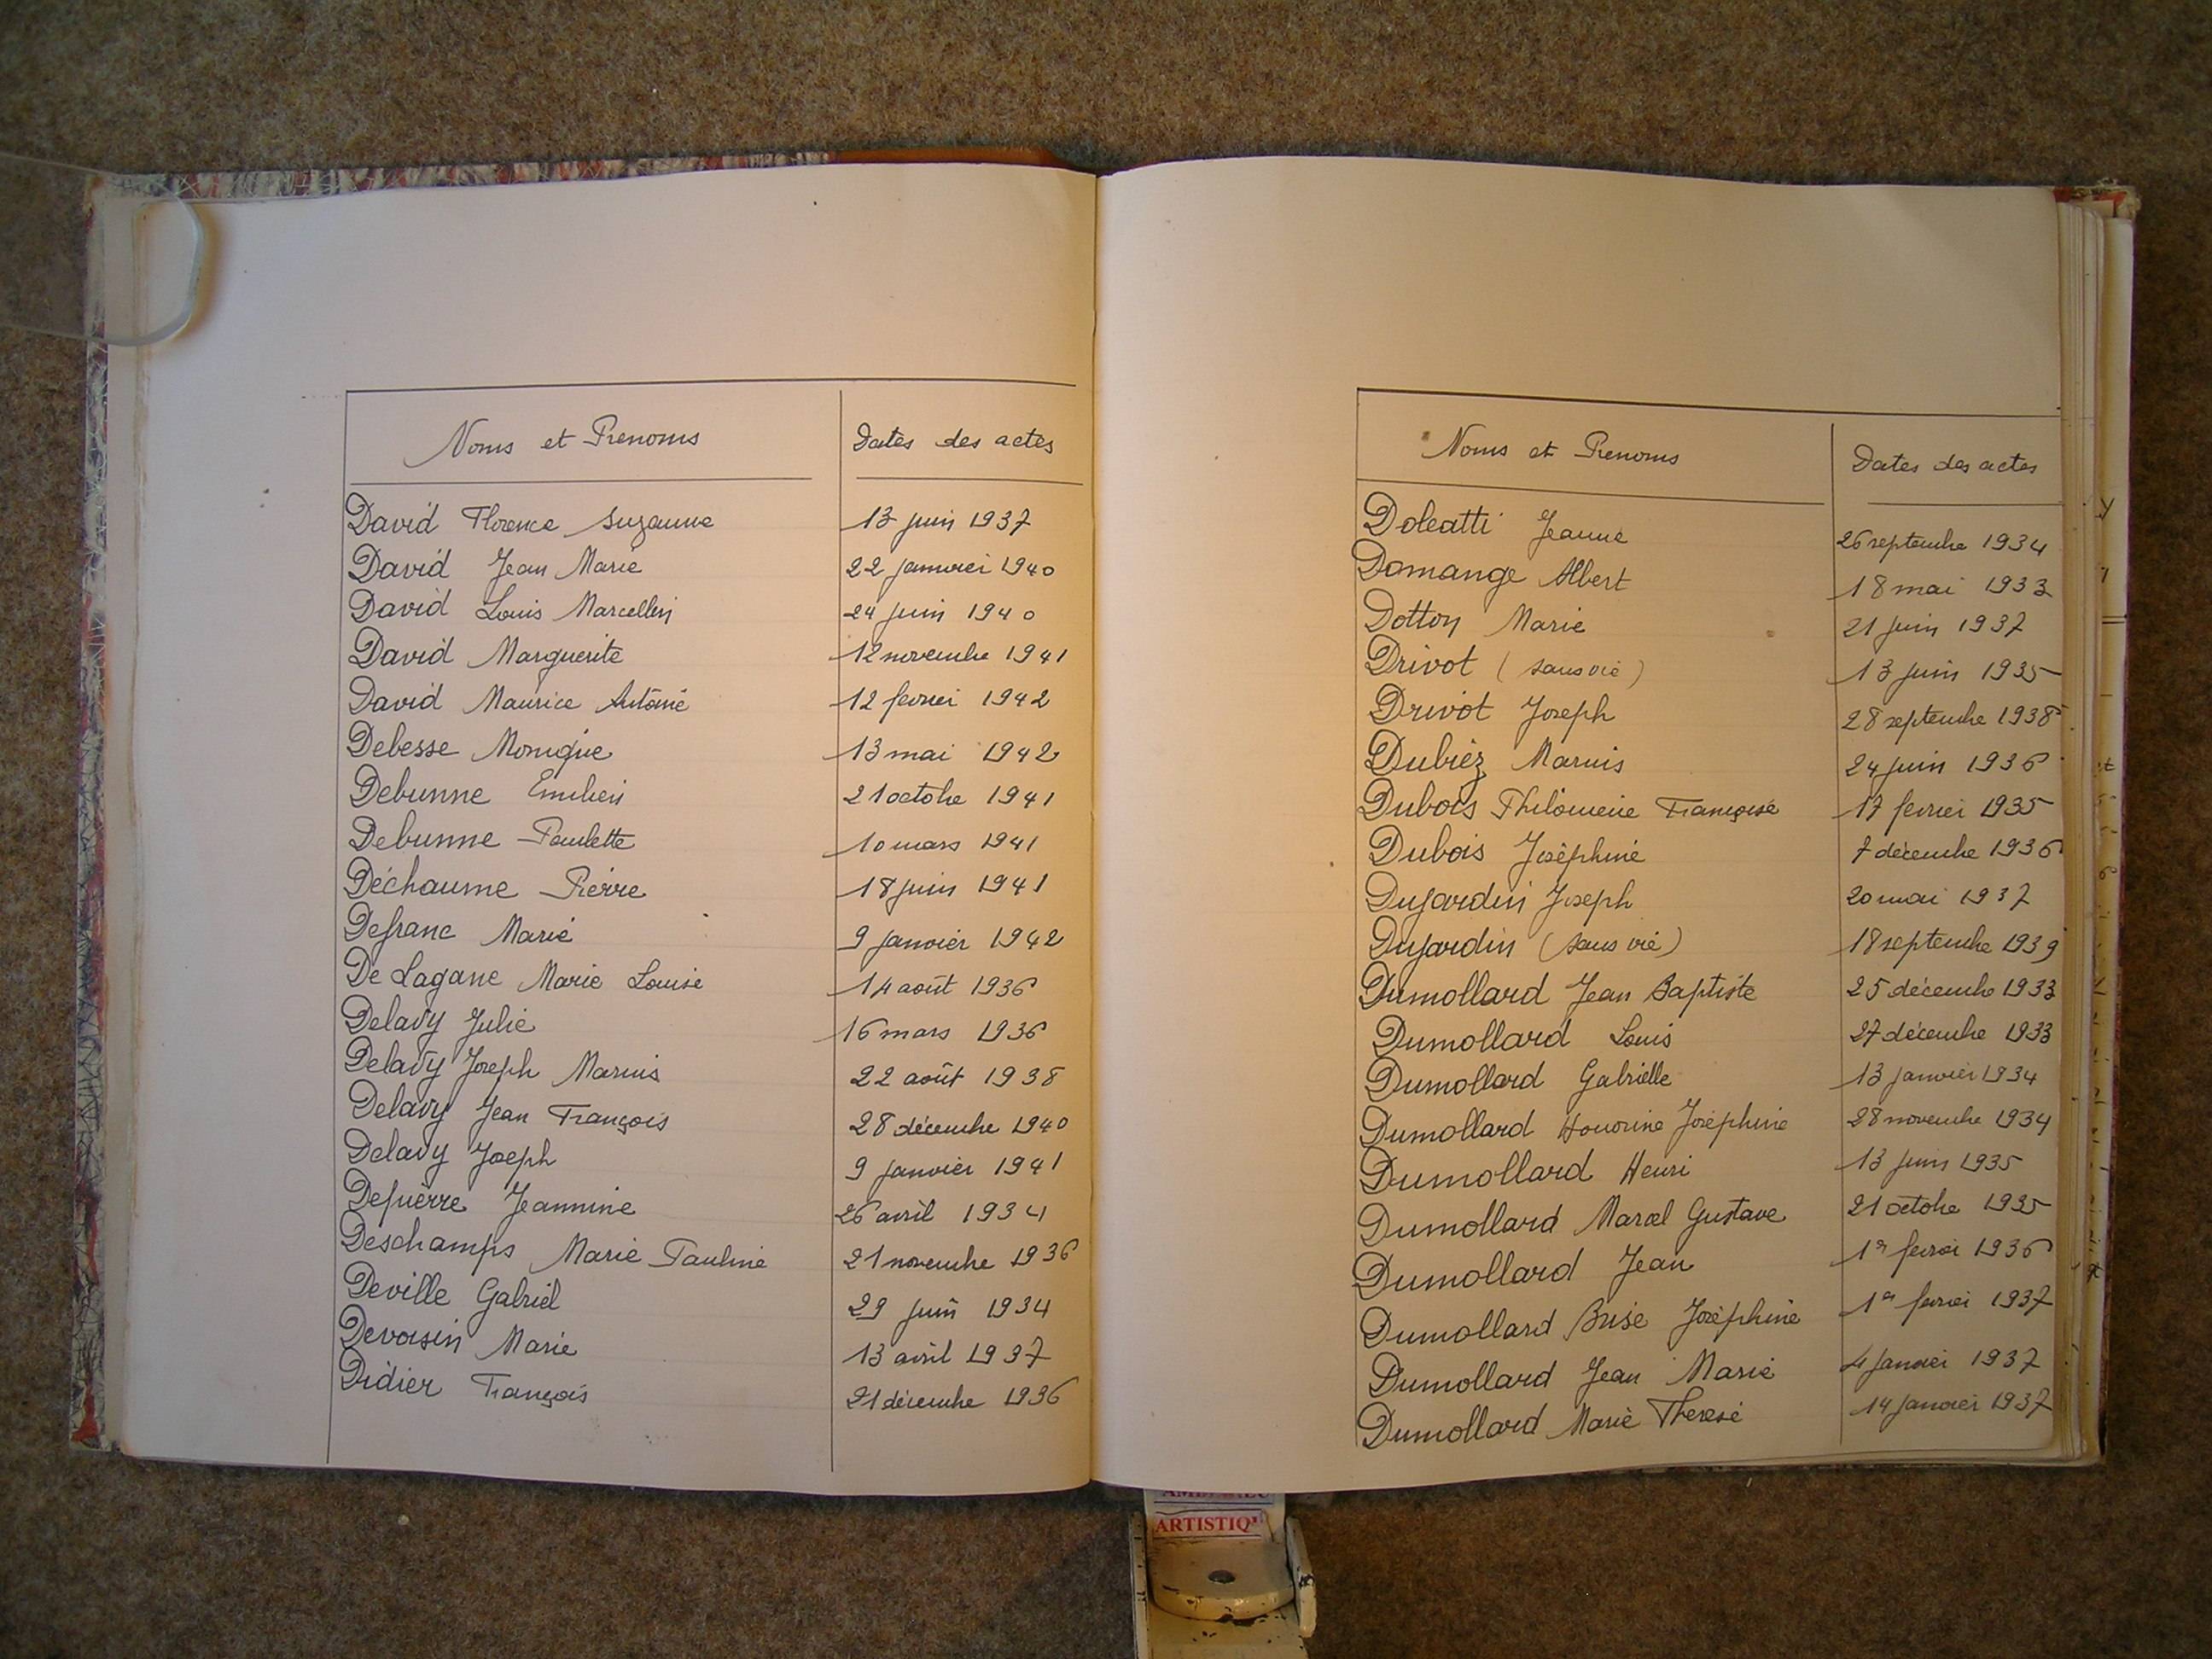 Noms et Prenoms Dates des actes
David Florence Suzanne 13 juin 1937
David Jean Marie 22 janvier 1940
David Louis Marcellin 24 juin 1940
David Marguerite 12 novembre 1941
David Maurice Antoine 12 fevrier 1942
Debesse Monique 13 mai 1942
Debunne Emilien 21 octobre 1941
Debunne Paulette 10 mars 1941
Déchaume Pierre 18 juin 1941
Defranc Marie 9 janvier 1942
De Lagane Marie Louise 14 août 1936
Delavy Julie 16 mars 1936
Delavy Joseph Marius 22 août 1938
Delavy Jean François 28 décembre 1940
Delavy Joseph 9 janvier 1941
Depierre Jeannine 26 avril 1934
Deschamps Marie Pauline 21 novembre 1936
Deville Gabriel 29 juin 1934
Devoisin Marie 13 avril 1937
Didier François 21 décembre 1936
Noms et Prenoms Dates des actes
Doleatti Jeanne 26 septembre 1934
Domange Albert 18 mai 1933
Dotton Marie 21 juin 1937
Drivot (sans vie) 13 juin 1935
Drivot Joseph 28 septembre 1938
Dubiez Marius 24 juin 1936
Dubois Philomène Françoise 17 fevrier 1935
Dubois Joséphine 7 décembre 1936
Dujardin Joseph 20 mai 1937
Dujardin (sans vie) 18 septembre 1939
Dumollard Jean Baptiste 25 décembre 1933
Dumollard Louis 27 décembre 1933
Dumollard Gabrielle 13 janvier 1934
Dumollard Honorine Joséphine 28 novembre 1934
Dumollard Henri 13 juin 1935
Dumollard Marcel Gustave 21 octobre 1935
Dumollard Jean 1er fevrier 1936
Dumollard Joséphine 1er fevrier 1937
Dumollard Jean Marie 4 janvier 1937
Dumollard Marie Therese 14 janvier 1937
ARTISTIQ